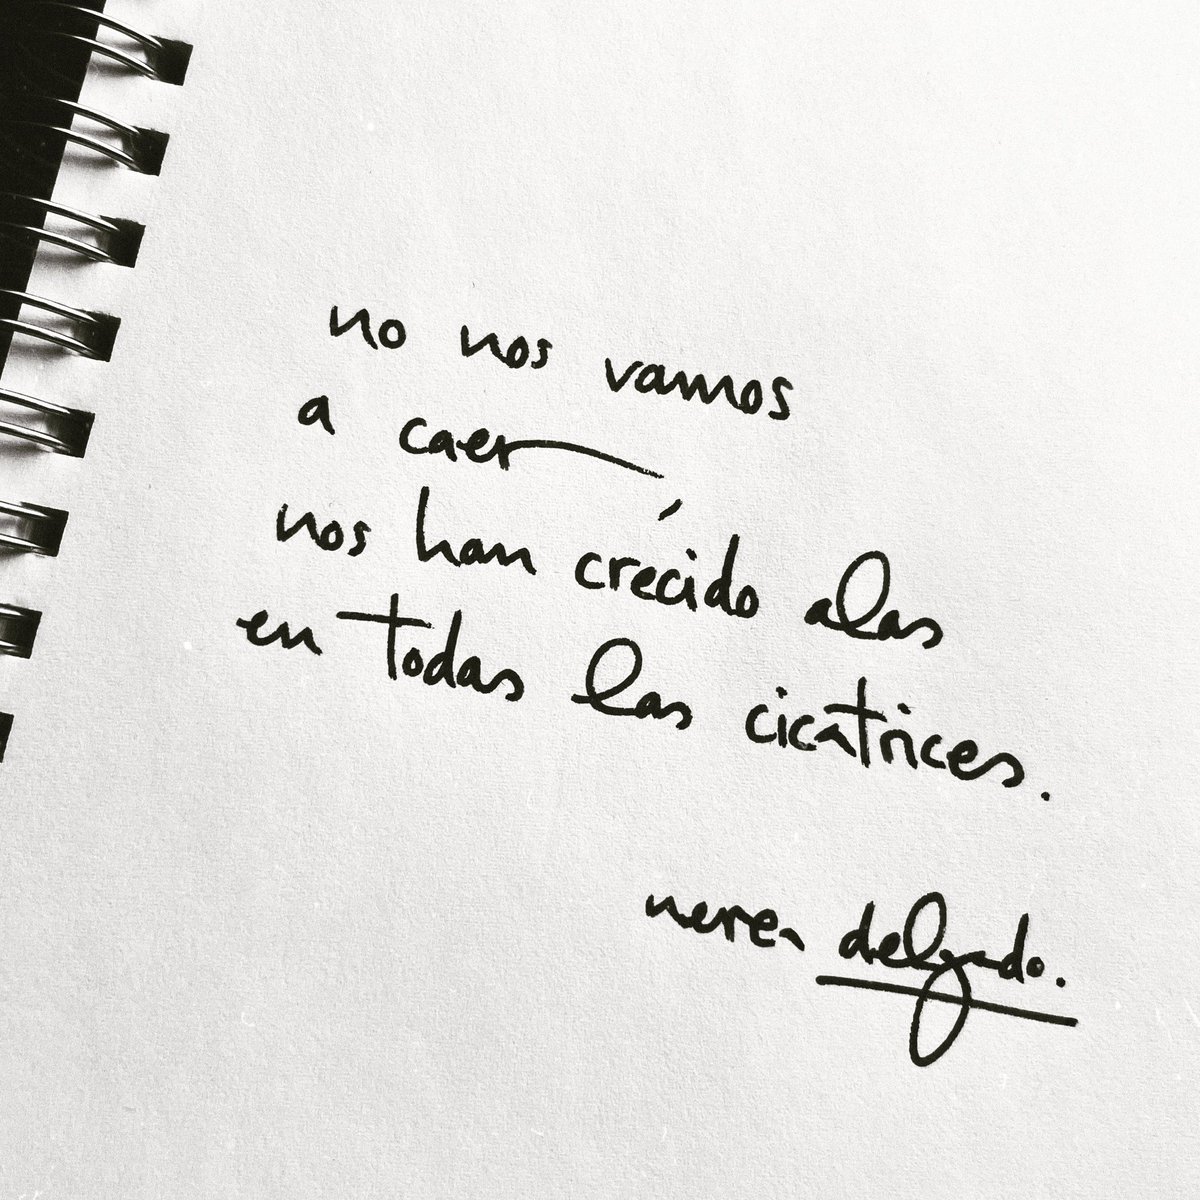 no nos vamos
a caer,
nos han crecido alas
en todas las cicatrices.
nerea delgado.